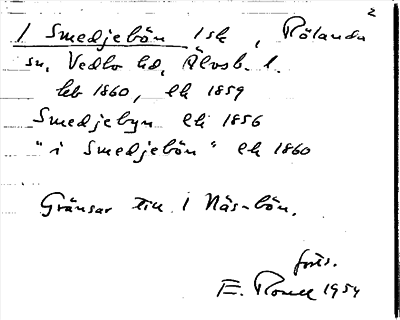 2
1 Smedjebön 1sk, Rölanda
sn, Vedbo hd, Älvsb. l.
lek 1860, ek 1859
Smedjebyn ek 1856
"i Smedjebön" ek 1860
Gränsar till 1 Näs-bön.
forts.
E. 1954